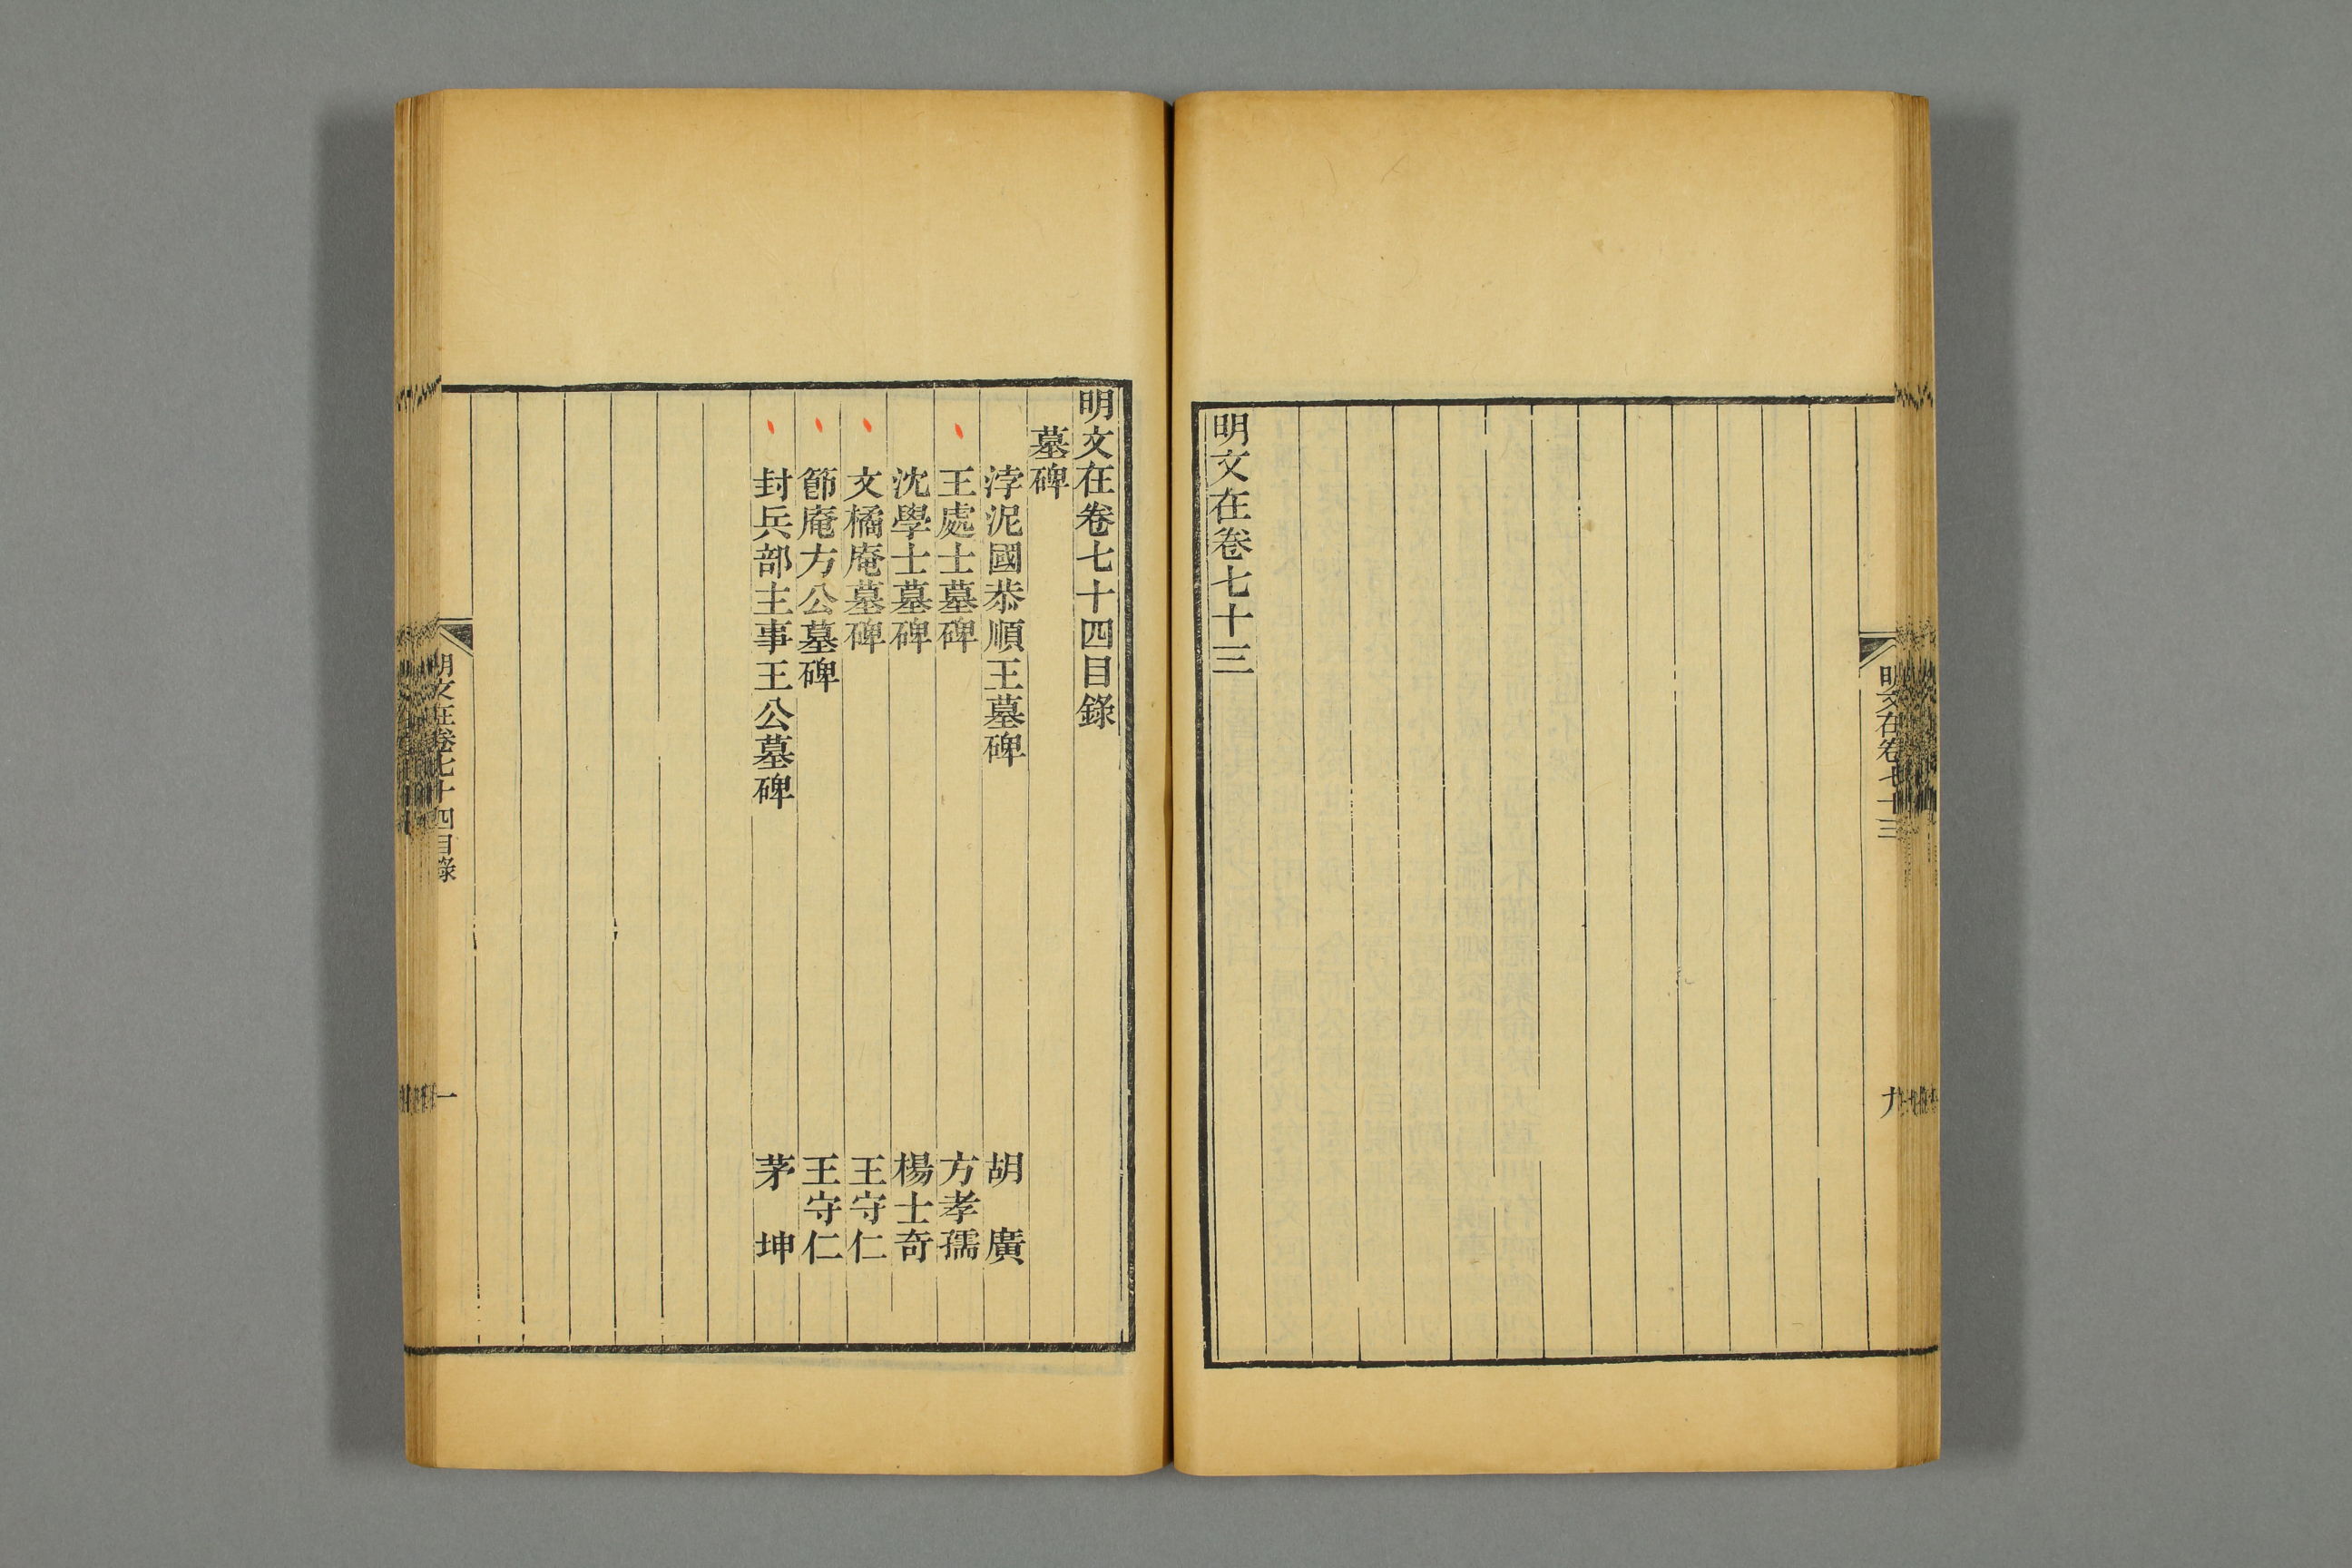 明文在卷七十三
九
明文在卷七十三
明文在卷七十四目錄
墓碑
浡泥國恭順王墓碑 胡廣
王處士墓碑 方孝孺
沈學士墓碑 楊士奇
文橘庵墓碑 王守仁
節庵方公墓碑 王守仁
封兵部主事王公墓碑 茅坤
明文在卷七十四目錄
一